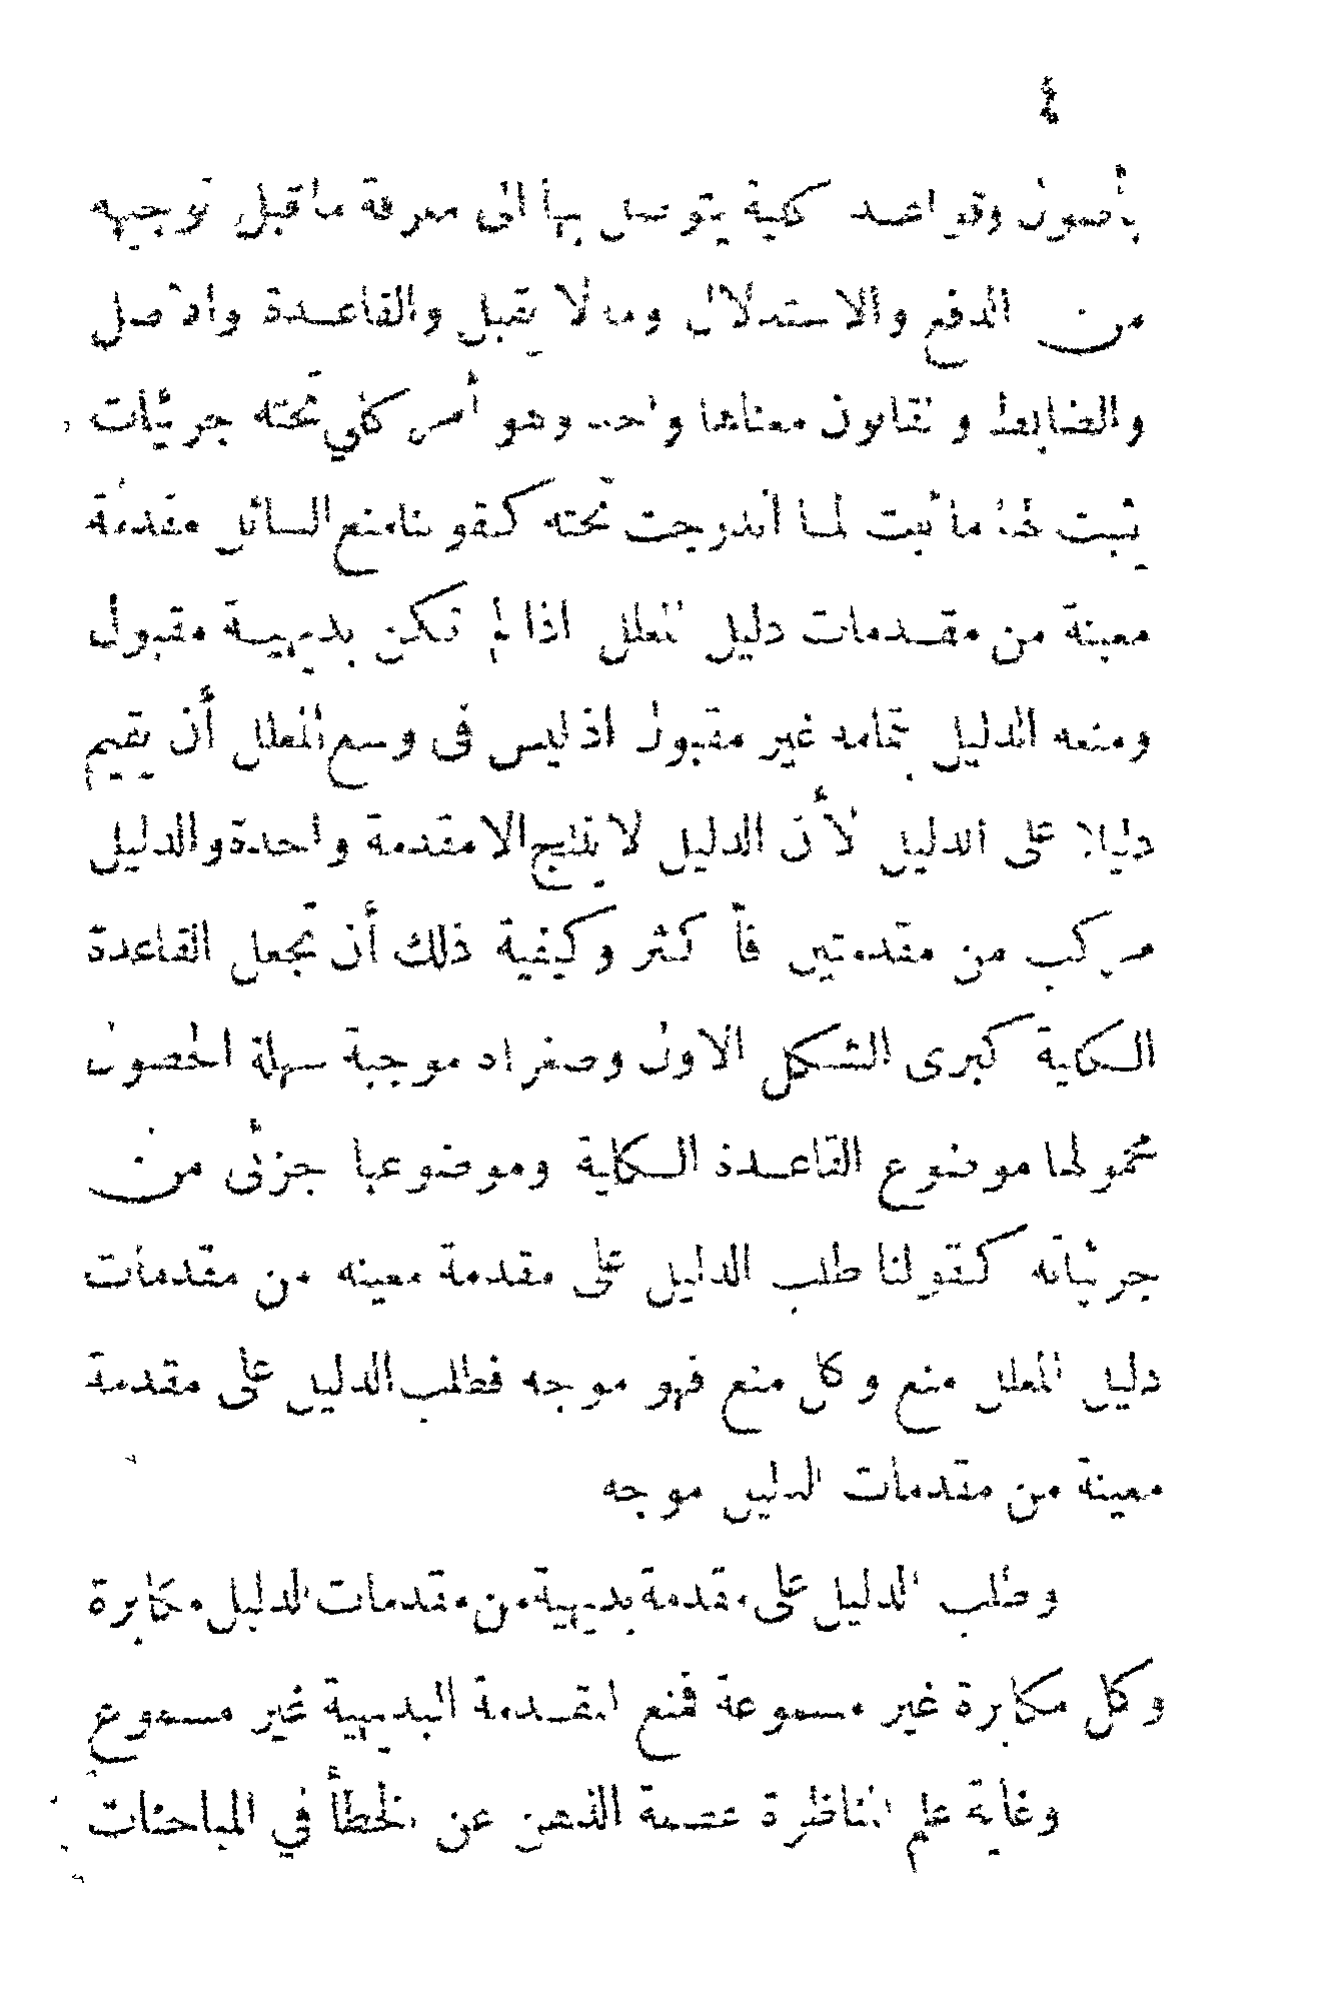 ٤
بأصول وقواعد كلية يتوصل بها الى معرفة ما قبل توجيهه
من الدفع والاستدلال وما لا يقبل والقاعدة والاصل
والضابط والقانون معناها واحد وهو أمر كلي تحته جزئيات
يثبت لها ما ثبت لما اندرجت تحته كقولنا منع السائل مقدمة
معينة من مقدمات دليل المعلل اذا لم تكن بديهية مقبول
ومنعه الدليل بتمامه غير مقبول اذ ليس في وسع المعلل أن يقيم
دليلا على الدليل لأن الدليل لا ينتج الا مقدمة واحدة والدليل
مركب من مقدمتين فأكثر وكيفية ذلك أن تجعل القاعدة
الكلية كبرى الشكل الاول وصغراه موجبة سهلة الحصول
محمولها موضوع القاعدة الكلية وموضوعها جزئى من
جزئياته كقولنا طلب الدليل على مقدمة معينه من مقدمات
دليل المعلل منع وكل منع فهو موجه فطلب الدليل على مقدمة
معينة من مقدمات الدليل موجه
وطلب الدليل على مقدمة بديهية من مقدمات الدليل مكابرة
وكل مكابرة غير مسموعة فمنع المقدمة البديهية غير مسموع
وغاية علم المناظرة عصمة الذهن عن الخطأ في المباحثات